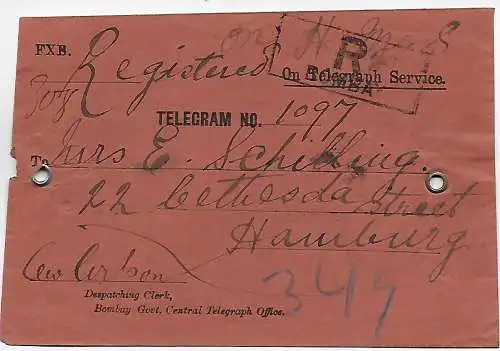 On H. M. S
FXB.
Registered
R
BOMBA
On Telegraph Service.
TELEGRAM NO. 1097
To Mrs E. Schilling.
22 Bethesda Street
Hamburg
349
Despatching Clerk,
Bombay Govt. Central Telegraph Office.